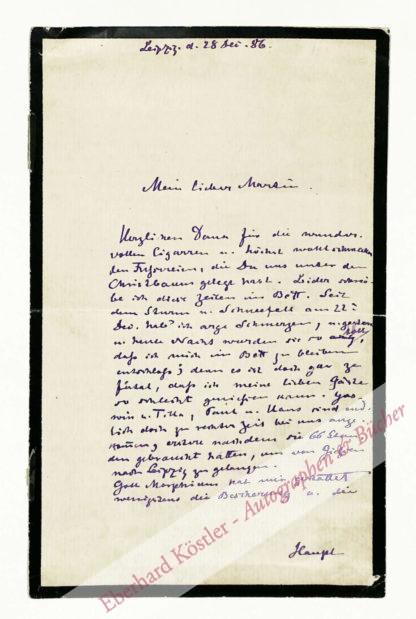 Leipzig. d. 28 Dez. 86.
Mein lieber Martin.
Herzlichen Dank für die wunder-
vollen Cigarren u. höchst wohlschmecken
den , die Du uns unter den
Christbaum gelegt hast. Leider schrei-
be ich diese Zeilen im Bett. Seit
dem Sturm u. Schneefall am 22t
Dez. hab' ich arge Schmerzen, u. gestern
u. heute Nacht wurden sie so
daß ich mich im Bett zu bleiben
entschloß; denn es ist doch gar zu
fatal, daß ich meine lieben Gäste
so schlecht genießen kann.
u. Paul u. Hans sind end-
lich doch zu rechter Zeit bei uns ange-
kommen, erstere nachdem sie 66 Stun-
den gebraucht hatten, um von Gießen
nach Leipzig zu gelangen.
Gott Morphium hat mir gestattet
wenigstens die Bescherung u. den
Eberhard Köstler - Autographen & Bücher